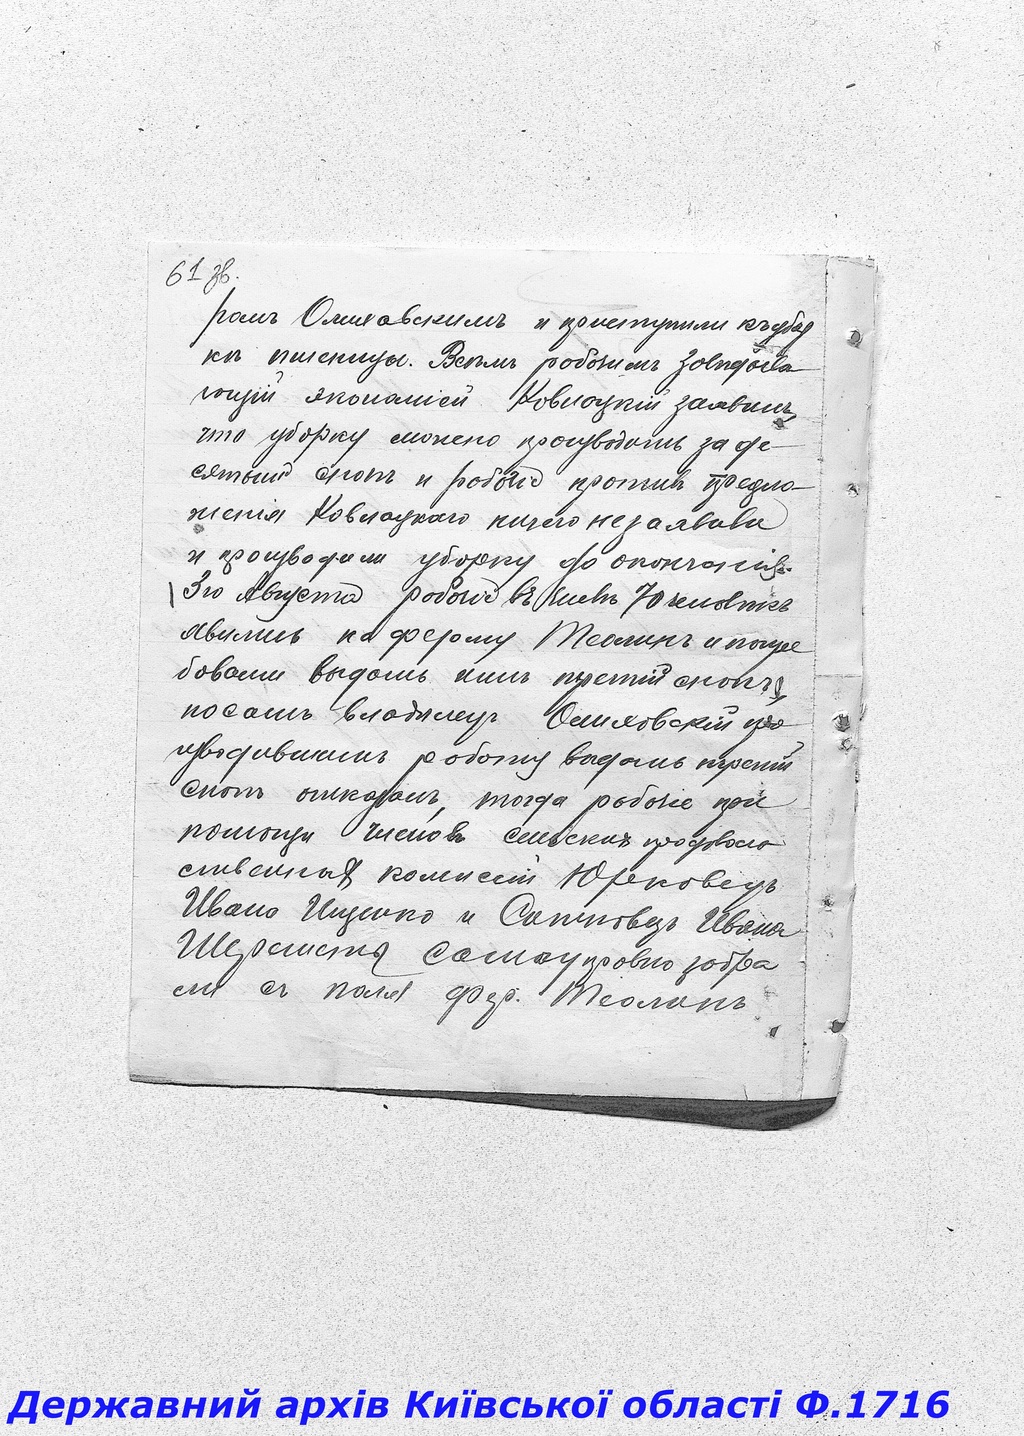 61 зв.
ромъ Олиховскимъ и приступили къ убор
кѣ пшеницы. Всѣмъ рабочимъ Завѣдыва
ющій экономіей Ковлоцкій заявилъ,
что уборку можно производить за де-
сятый снопъ и рабочіе противъ предло-
женія Ковлоцкаго ничего не заявили
и производили уборку до окончанія.
3го Августа рабочіе въ числѣ 70 человѣкъ
явились на ферму Теолинъ и потре
бовали выдать имъ третій снопъ,
Владимиръ Олиховскій про
изводившимъ работу выдать третій
снопъ отказалъ, тогда рабочіе при
помощи членовъ сельскихъ продоволь
ственныхъ комисій Юрковецъ
Ивана Ищенко и Сатановецъ Ивана
самоуправно забра
ли съ поля фер. Теолинъ
Державний архів Київської області Ф.1716